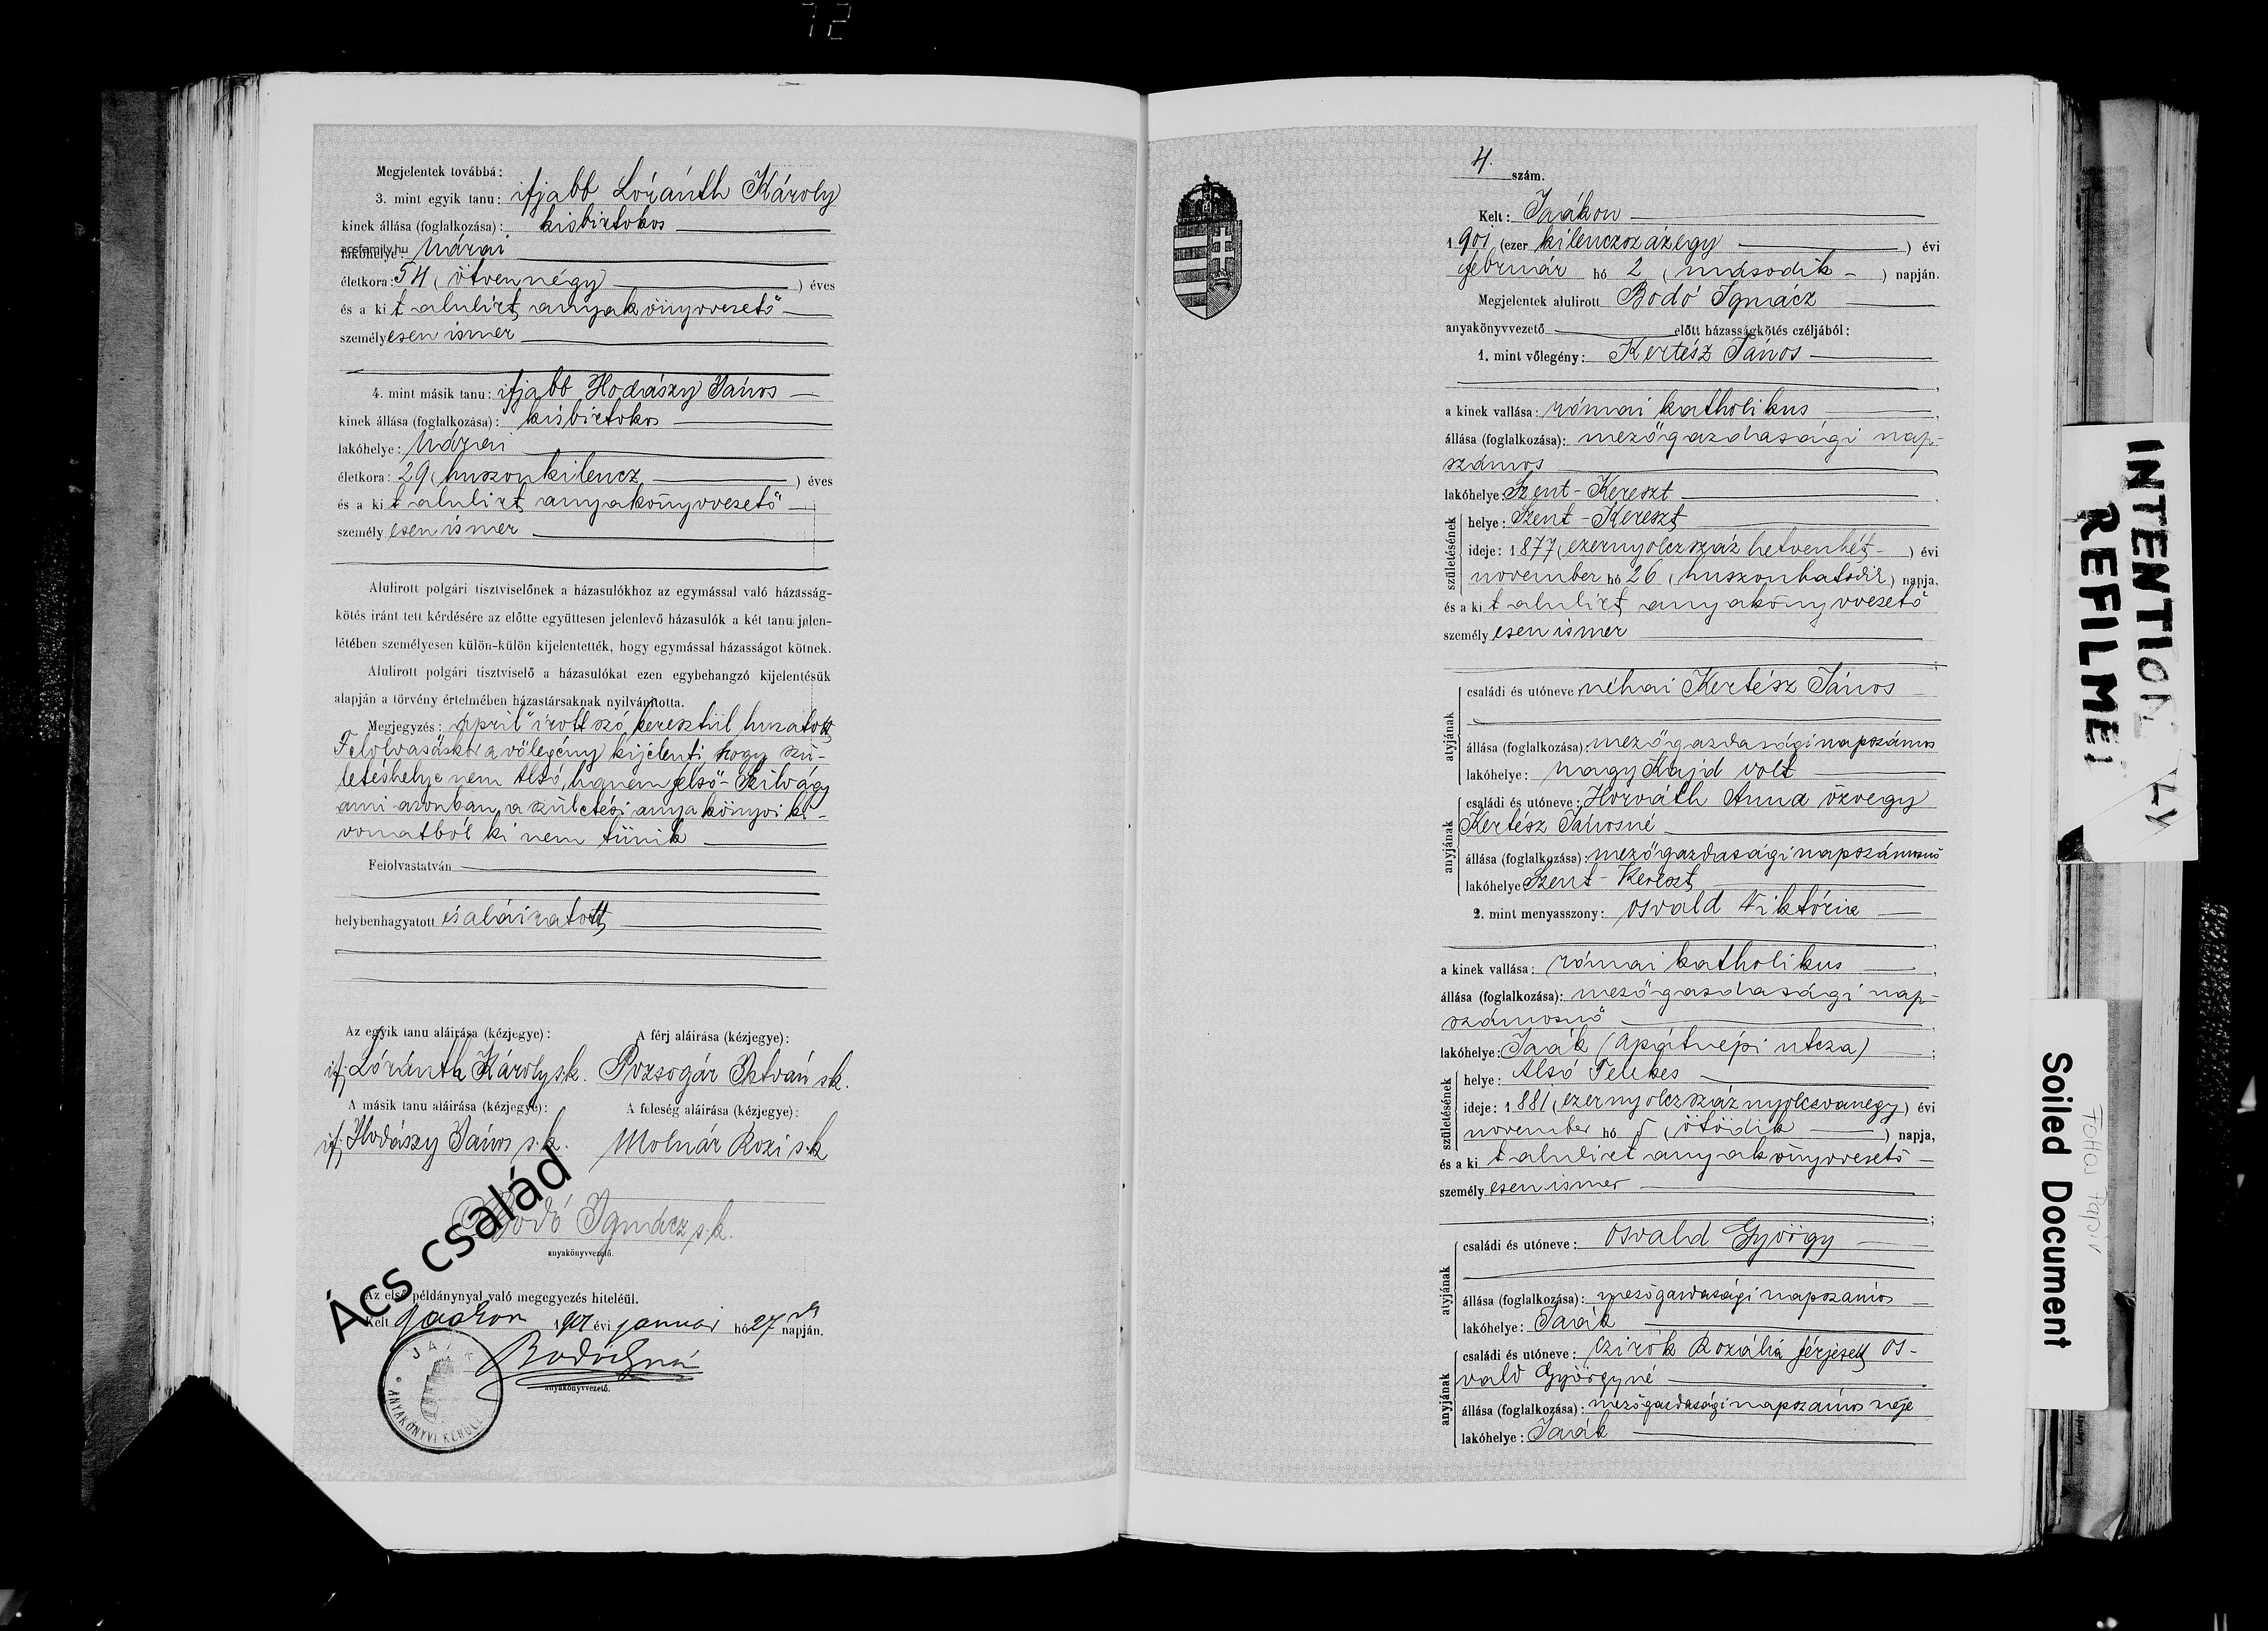 72
Megjelentek továbbá:
3. mint egyik tanu: ifjabb Lóránth Károly
kinek állása (foglalkozása): kisbirtokos
acsfamily.hu
lakóhelye: Nárai
életkora: 54 (ötvennégy) éves
és a kit alulirt anyakönyvvezető
személyesen ismer
4. mint másik tanu: ifjabb Hodászy János
kinek állása (foglalkozása): kisbirtokos
lakóhelye: Nárai
életkora: 29 (huszonkilencz) éves
és a kit alulirt anyakönyvvezető
személyesen ismer
Alulirott polgári tisztviselőnek a házasulókhoz az egymással való házasság-
kötés iránt tett kérdésére az előtte együttesen jelenlevő házasulók a két tanu jelen-
létében személyesen külön-külön kijelentették, hogy egymással házasságot kötnek.
Alulirott polgári tisztviselő a házasulókat ezen egybehangzó kijelentésük
alapján a törvény értelmében házastársaknak nyilvánitotta.
Megjegyzés: „april" irott szó keresztül huzatott
Felolvasáskor a vőlegény kijelenti, hogy szü-
letéshelye nem Alsó, hanem felső-Szilvágy
ami azonban a születési anyakönyvi ki-
vonatból ki nem tünik
Felolvastatván
helybenhagyatott és aláiratott
Az egyik tanu aláirása (kézjegye):
A férj aláirása (kézjegye):
if. Lóránth Károly s.k. Pozsogár István sk.
A másik tanu aláirása (kézjegye):
A feleség aláirása (kézjegye):
if. Hodászy János s.k. Molnár Rozi s.k
Bodó Ignácz s.k.
anyakönyvvezető.
Ács család
Az első példánynyal való megegyezés hiteléül.
Kelt Jaákon 1901 évi január hó 27 napján.
Bodó Ignácz
anyakönyvvezető.
JAÁK
ANYAKÖNYVI KERÜLET
4. szám.
Kelt: Jaákon
1901 (ezer kilenczszázegy) évi
február hó 2 (második) napján.
Megjelentek alulirott Bodó Ignácz
anyakönyvvezető előtt házasságkötés czéljából:
1. mint vőlegény: Kertész János
a kinek vallása: római katholikus
állása (foglalkozása): mezőgazdasági nap-
számos
lakóhelye: Szent-Kereszt
születésének
helye: Szent-Kereszt
ideje: 1877 (ezernyolczszáz hetvenhét) évi
november hó 26 (huszonhatodik) napja.
és a kit alulirt anyakönyvvezető
személyesen ismer
atyjának
családi és utóneve: néhai Kertész János
állása (foglalkozása): mezőgazdasági napszámos
lakóhelye: nagy Kajd volt
anyjának
családi és utóneve: Horváth Anna özvegy
Kertész Jánosné
állása (foglalkozása): mezőgazdasági napszámosnő
lakóhelye: Szent-Kereszt
2. mint menyasszony: Osvald Viktória
a kinek vallása: római katholikus
állása (foglalkozása): mezőgazdasági nap-
számosnő
lakóhelye: Jaák (Apátnépi utcza)
születésének
helye: Alsó Telekes
ideje: 1881 (ezernyolczszáznyolczvanegy) évi
november hó 5 (ötödik) napja,
és a kit alulirt anyakönyvvezető
személyesen ismer
atyjának
családi és utóneve: Osvald György
állása (foglalkozása): mezőgazdasági napszámos
lakóhelye: Jaák
anyjának
családi és utóneve: Czirók Rozália férjezett Os-
vald Györgyné
állása (foglalkozása): mezőgazdasági napszámos neje
lakóhelye: Jaák
INTENTION
REFILMEI
Soiled Document